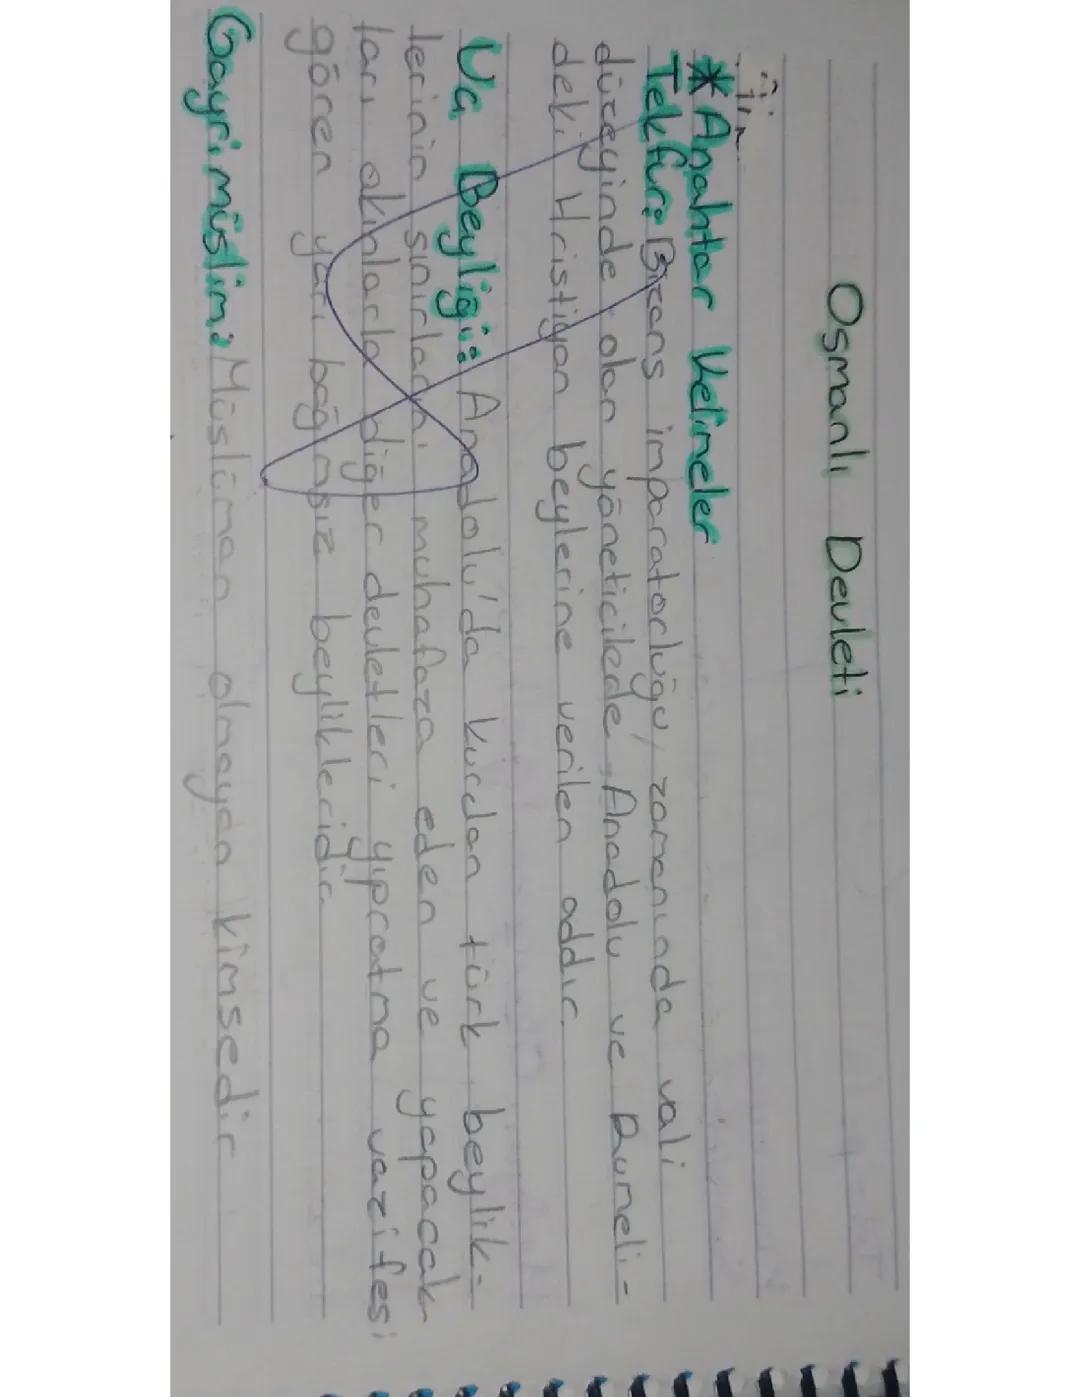 Osmanlı Devleti
*Anahtar Kelimeler
Tekfur: Bizans imparatorluğu, zamanında vali
düzeyinde olan yöneticilerde Anadolu ve Rumeli-
deki Hristiyan beylerine verilen addır.
Uç Beyliği: Anadolu'da kurdan türk beylik-
lerinin sınırlarını muhafaza eden ve yapacak
ları akınlarla diğer devletleri yıpratma vazifesi
gören yarı bağımsız beyliklerdir.
Gayrimüslim: Müslüman olmayan kimsedir